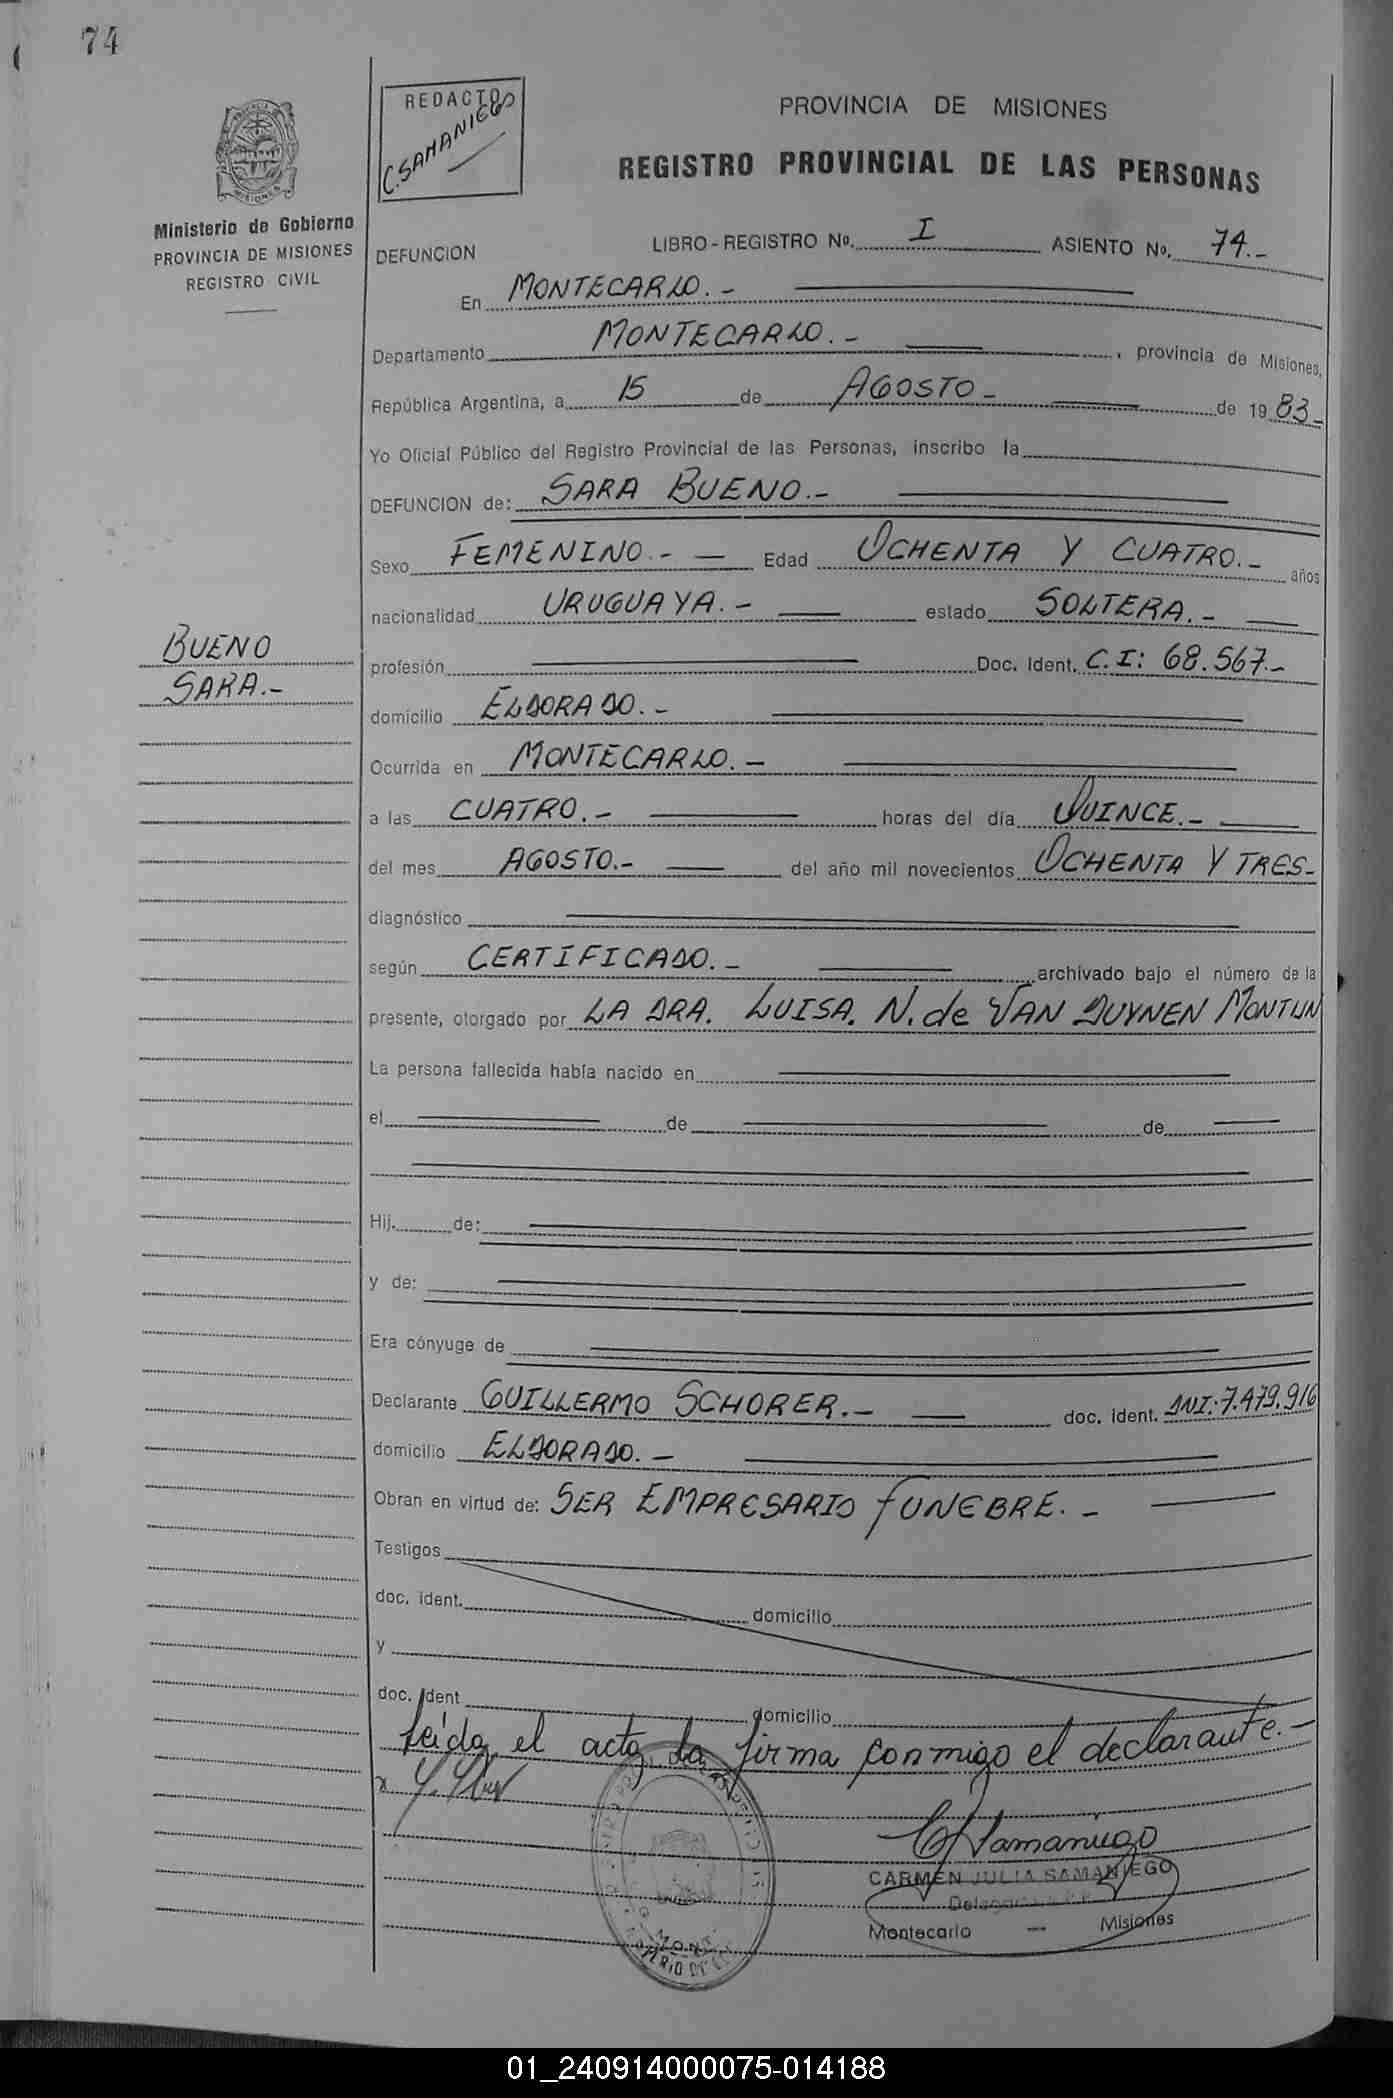 74
REDACTO
C. SAMANIEGO
PROVINCIA DE MISIONES
REGISTRO PROVINCIAL DE LAS PERSONAS
MISIONES
Ministerio de Gobierno
PROVINCIA DE MISIONES
REGISTRO CIVIL
DEFUNCION LIBRO - REGISTRO No. I ASIENTO No. 74.-
En MONTECARLO.-
Departamento MONTECARLO.- , provincia de Misiones,
República Argentina, a 15 de AGOSTO - de 19 83-
Yo Oficial Público del Registro Provincial de las Personas, inscribo la
DEFUNCION de: SARA BUENO.-
Sexo FEMENINO.- Edad OCHENTA Y CUATRO.- años
nacionalidad URUGUAYA.- estado SOLTERA.-
BUENO
SARA.-
profesión Doc. Ident. C.I: 68.567.-
domicilio ELDORADO.-
Ocurrida en MONTECARLO.-
a las CUATRO.- horas del día QUINCE.-
del mes AGOSTO.- del año mil novecientos OCHENTA Y TRES-
diagnóstico
según CERTIFICADO.- archivado bajo el número de la
presente, otorgado por LA DRA. LUISA. N. de VAN DUYNEN
La persona fallecida había nacido en
el de de
Hij. de:
y de:
Era cónyuge de
Declarante GUILLERMO SCHORER.- doc. ident. DNI: 7.479.916
domicilio ELDORADO.-
Obran en virtud de: SER EMPRESARIO FUNEBRE.-
Testigos
doc. ident. domicilio
y
doc. ident domicilio
Leída el acta la firma conmigo el declarante.-
x
CJSamaniego
CARMEN JULIA SAMANIEGO
Montecarlo — Misiones
01_240914000075-014188